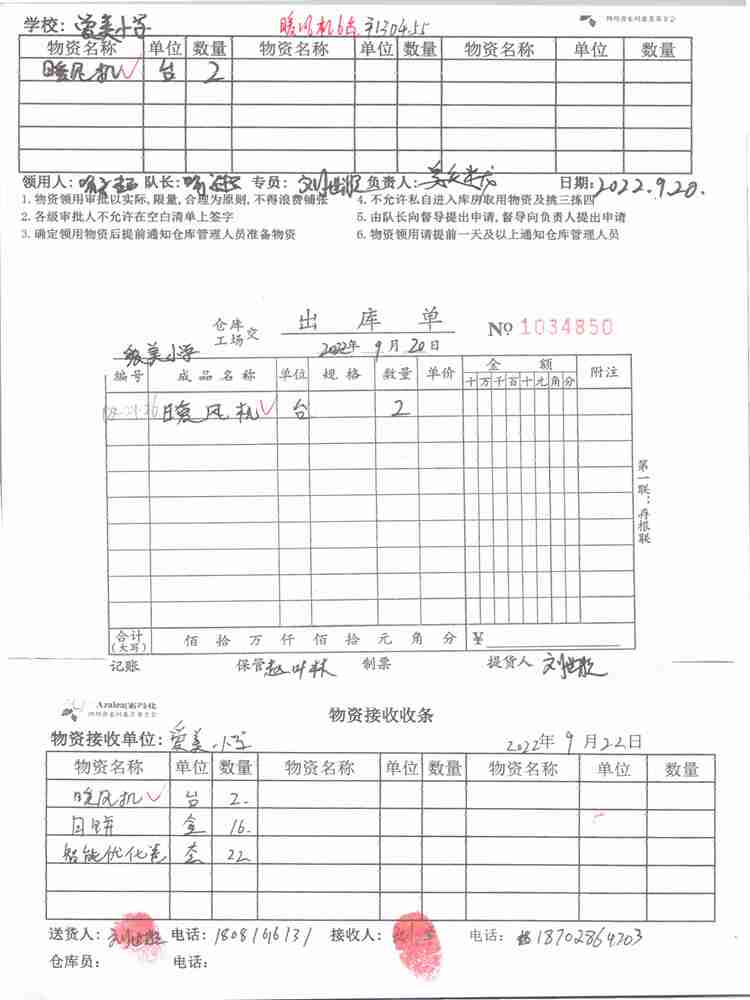 学校: 爱美小学 暖风机6台
物资名称 单位 数量 物资名称 单位 数量 物资名称 单位 数量
暖风机 台 2
领用人: 队长: 专员: 刘世聪 负责人: 日期: 2022.9.20.
1. 物资领用审批以实际, 限量, 合理为原则, 不得浪费铺张 4. 不允许私自进入库房取用物资及挑三拣四
2. 各级审批人不允许在空白清单上签字 5. 由队长向督导提出申请, 督导向负责人提出申请
3. 确定领用物资后提前通知仓库管理人员准备物资 6. 物资领用请提前一天及以上通知仓库管理人员
仓库
工场 交 出库单 № 1034850
爱美小学 2022年 9月20日
编号 成品名称 单位 规格 数量 单价 金额 附注
十万千百十元角分
暖风机 台 2
第一联:存根联
合计(大写) 佰拾万仟佰拾元角分 ¥
记账 保管 赵叶林 制票 提货人
Azalea
物资接收收条
物资接收单位: 爱美小学 2022年 9月22日
物资名称 单位 数量 物资名称 单位 数量 物资名称 单位 数量
暖风机 台 2.
月饼 盒 16.
智能优化 套 22
送货人: 电话: 18081616131 接收人: 电话: 18702864703
仓库员: 电话: